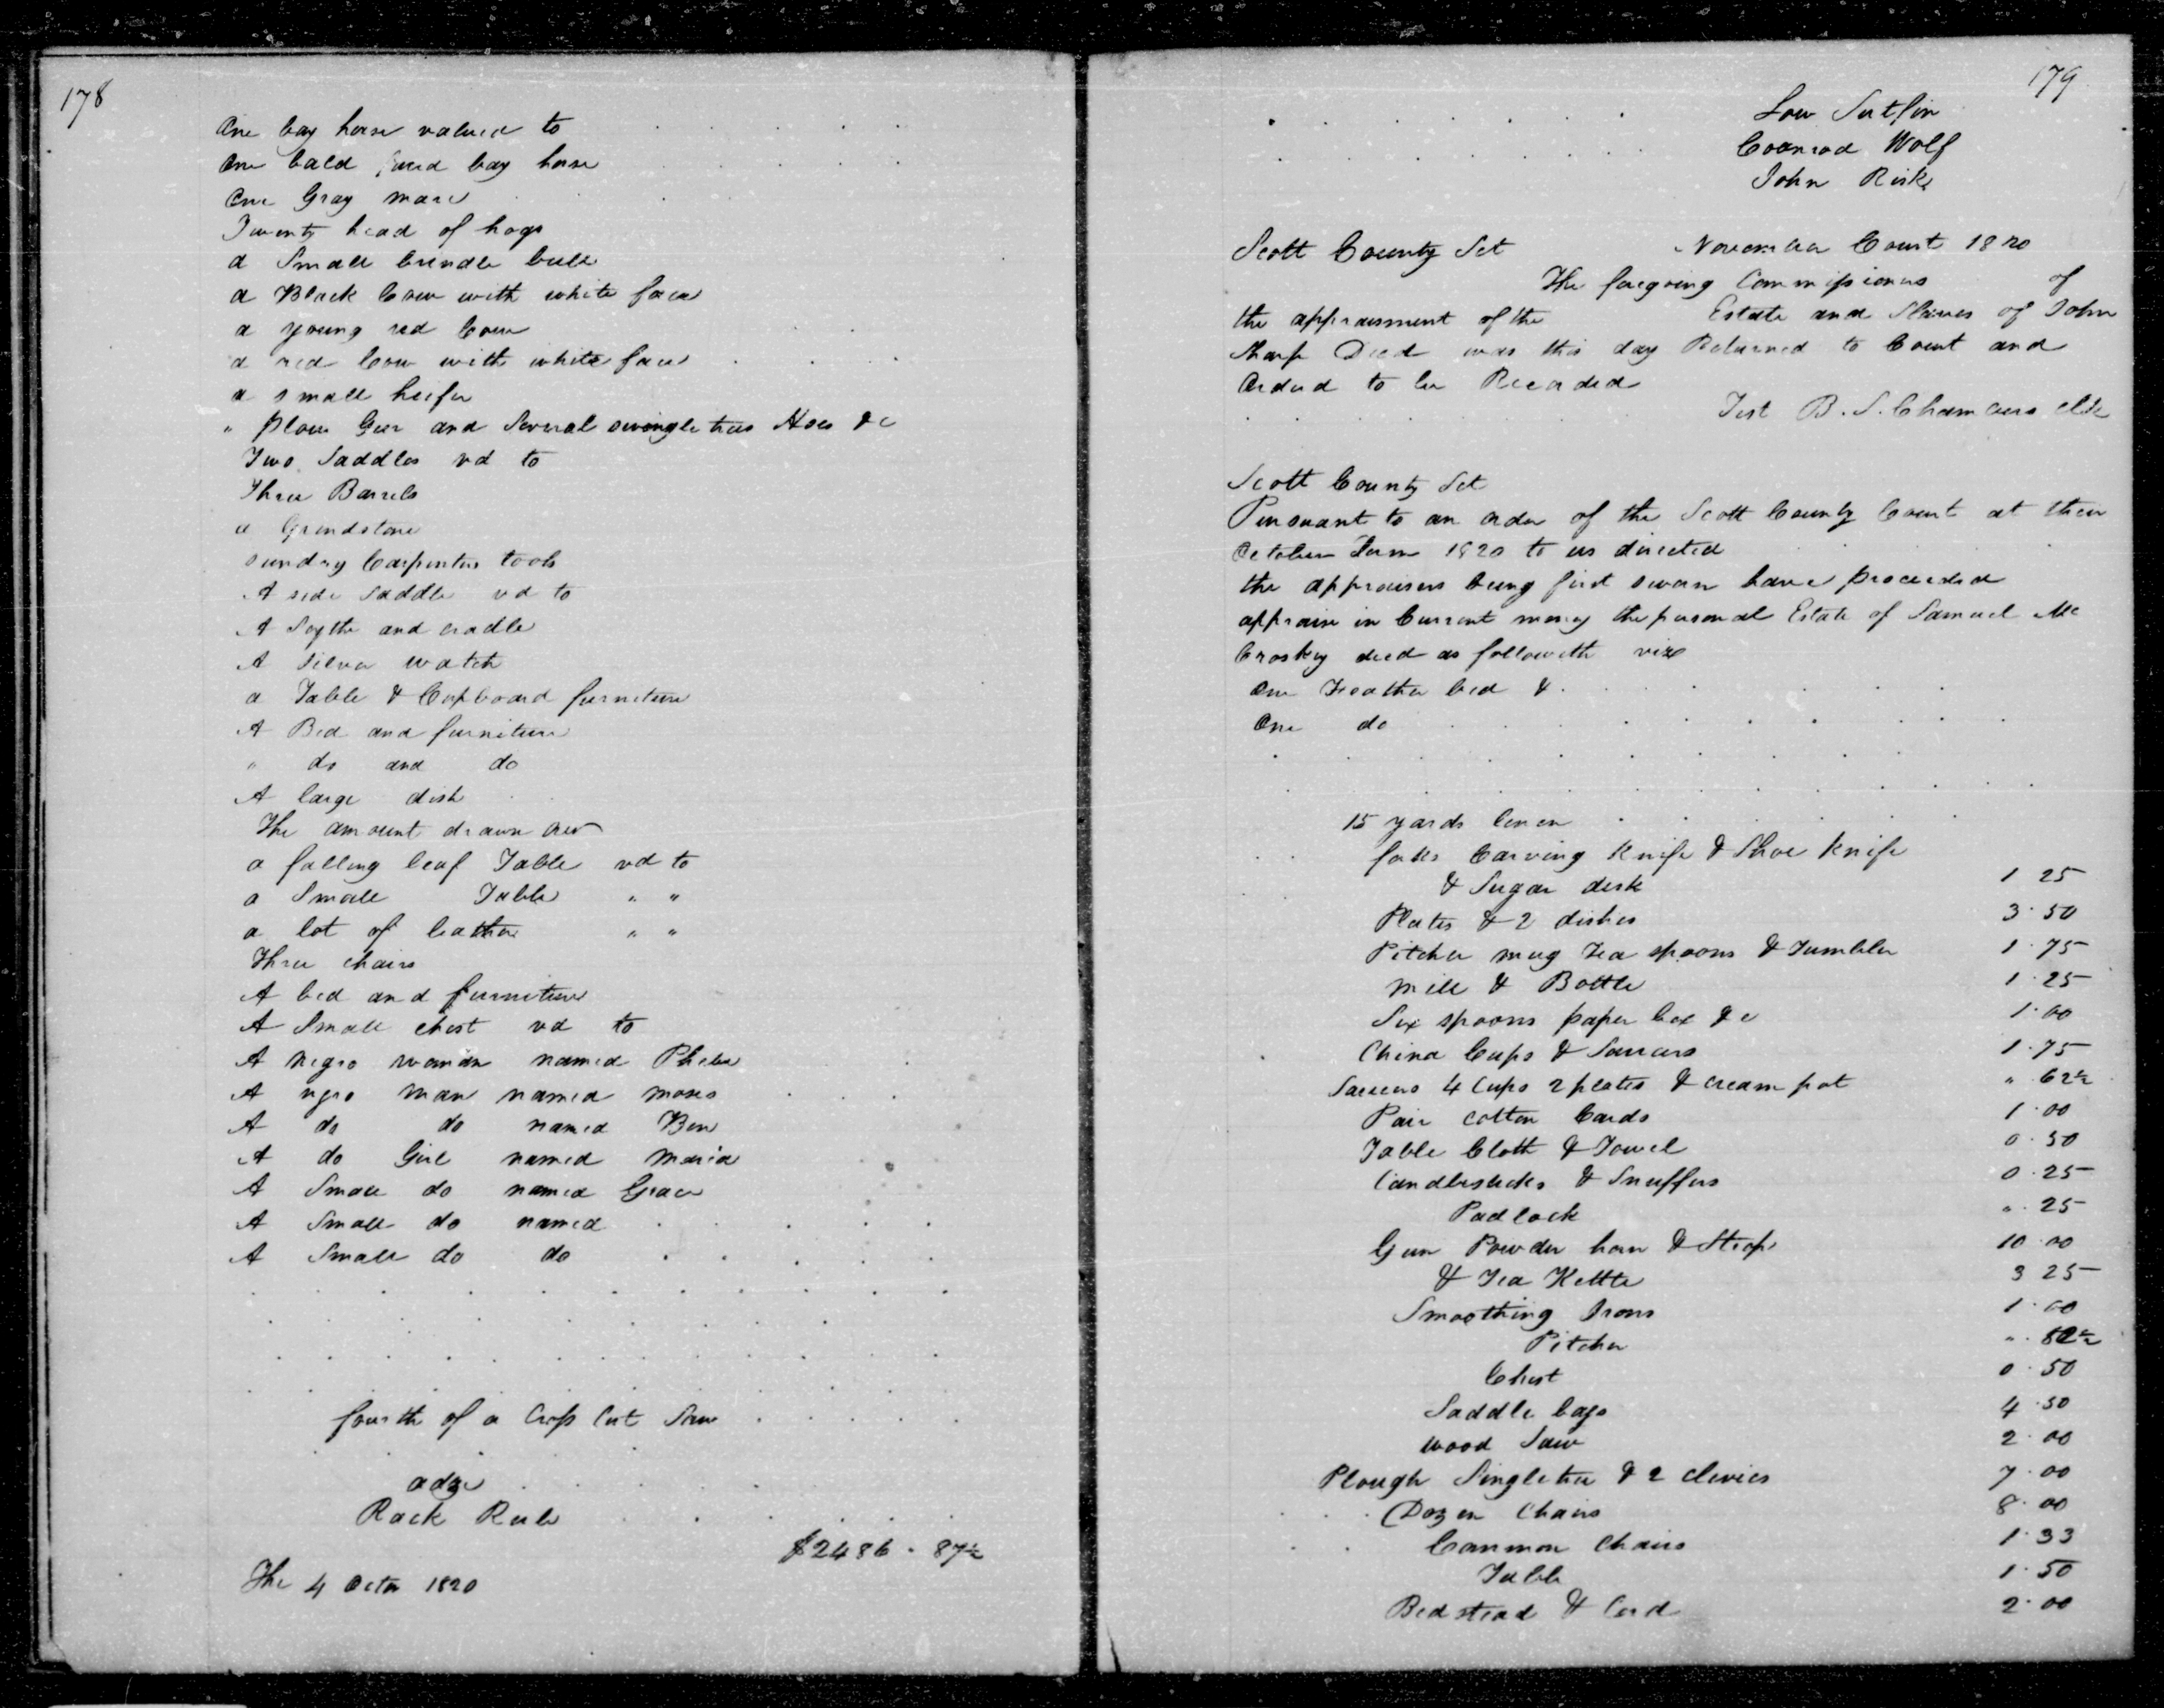 178
One bay horse valued to
One bald faced bay horse
One Gray mare
Twenty head of hogs
a Small brindle bull
a Black Cow with white face
a young red Cow
a red Cow with white face
a small heifer
" plow Gear and Several swingle trees Hoes &c
Two Saddles vd to
Three Barrels
a Grindstone
sundry Carpenters tools
A side Saddle vd to
A Sythe and cradle
A Silver watch
a Table & Cupboard furniture
A Bed and furniture
" do and do
A large dish
The amount drawn over
a falling leaf Table vd to
a Small Table " "
a lot of leather " "
Three chairs
A bed and furniture
A Small chest vd to
A negro woman named Phebe
A negro man named moses
A do do named Ben
A do Girl named Maria
A Small do named Grace
A Small do named
A Small do do
fourth of a Cross Cut Saw
adze
Rack Rule
$2486 . 87½
The 4 Octr 1820
179
Low Sutfin
Coonrod Wolf
John Risk
Scott County Sct November Court 1820
The foregoing Commissioners of
the appraisment of the Estate and Slaves of John
Sharp Decd was this day Returned to Court and
Orderd to be Recorded
Test B. S. Chambers Clk
Scott County Sct
Pursuant to an order of the Scott County Court at their
October Term 1820 to us directed
the appraisers being first sworn have proceeded
appraise in Current money the personal Estate of Samuel Mc
Croskey decd as followeth viz
One Feather bed &
One do
15 yards linen
forks Carving Knife & Shoe Knife
& Sugar desk 1 25
Plates & 2 dishes 3.50
Pitcher mug Tea spoons & Tumbler 1.75
Mill & Bottle 1.25
Six spoons paper box &c 1.00
China Cups & Saucers 1.75
Saucers 4 Cups 2 plates & cream pot " 62½
Pair cotton Cards 1.00
Table Cloth & Towel 0.50
Candlesticks & Snuffers 0.25
Padlock " 25
Gun Powder horn & Strap 10.00
& Tea Kettle 3 25
Smoothing Irons 1.00
Pitcher
Chest 0.50
Saddle bags 4.50
wood Saw 2.00
Plough Singletree & 2 clevies 7.00
Dozen Chairs 8.00
Common Chairs 1.33
Table 1.50
Bedstead & Cord 2.00